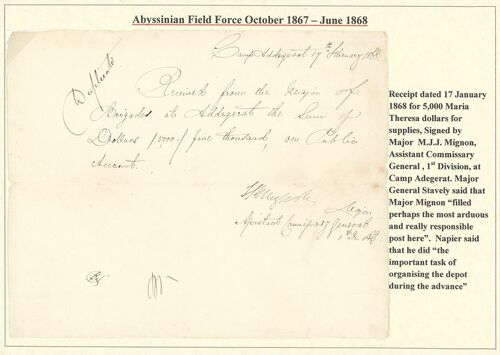 Abyssinian Field Force October 1867 – June 1868
Camp Addegerat 17th February 1868
Duplicate
Received from the Major of
Brigades at Addegerat the Sum of
Dollars /5000/ five thousand, on Public
Account.
Major
Assistant Commissary General
1st Div
Receipt dated 17 January
1868 for 5,000 Maria
Theresa dollars for
supplies, Signed by
Major M.J.J. Mignon,
Assistant Commissary
General , 1st Division, at
Camp Adegerat. Major
General Stavely said that
Major Mignon “filled
perhaps the most arduous
and really responsible
post here”. Napier said
that he did “the
important task of
organising the depot
during the advance”